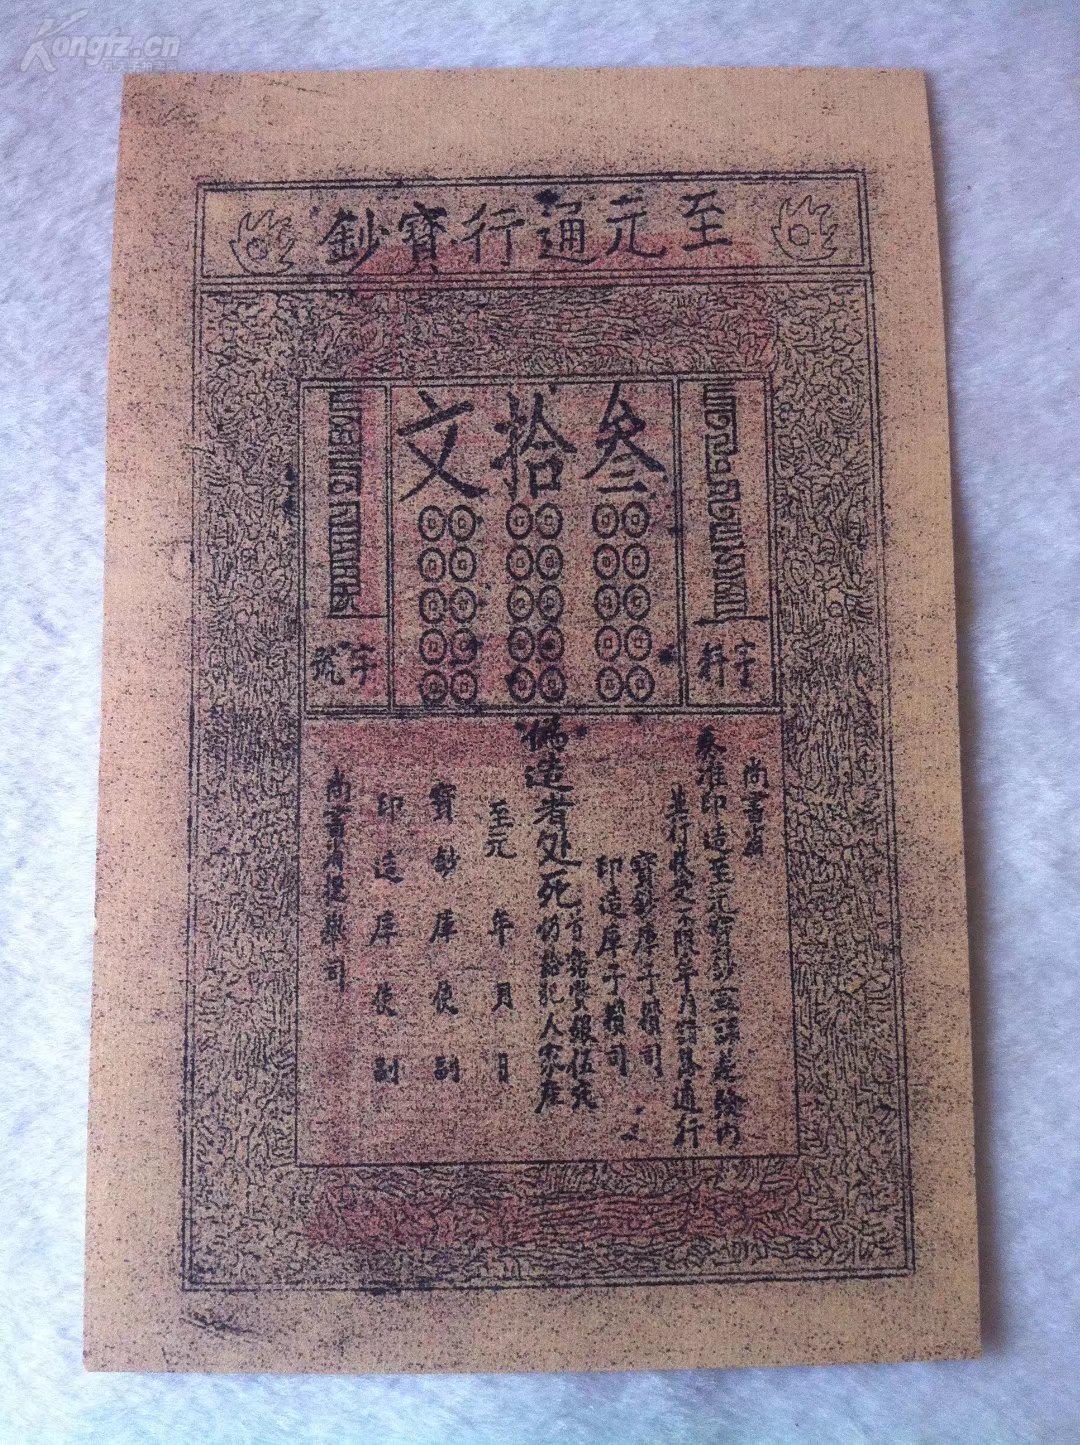 Kongfz.cn
至元通行寶鈔
叁拾文
字料
字號
尚書省
奏准印造至元寶鈔宣課差發內
並行收受不限年月諸路通行
寶鈔庫子攢司
印造庫子攢司
偽造者处死
首告者賞銀伍定
仍給犯人家産
至元 年 月 日
寶鈔庫使副
印造庫使副
尚書省提舉司